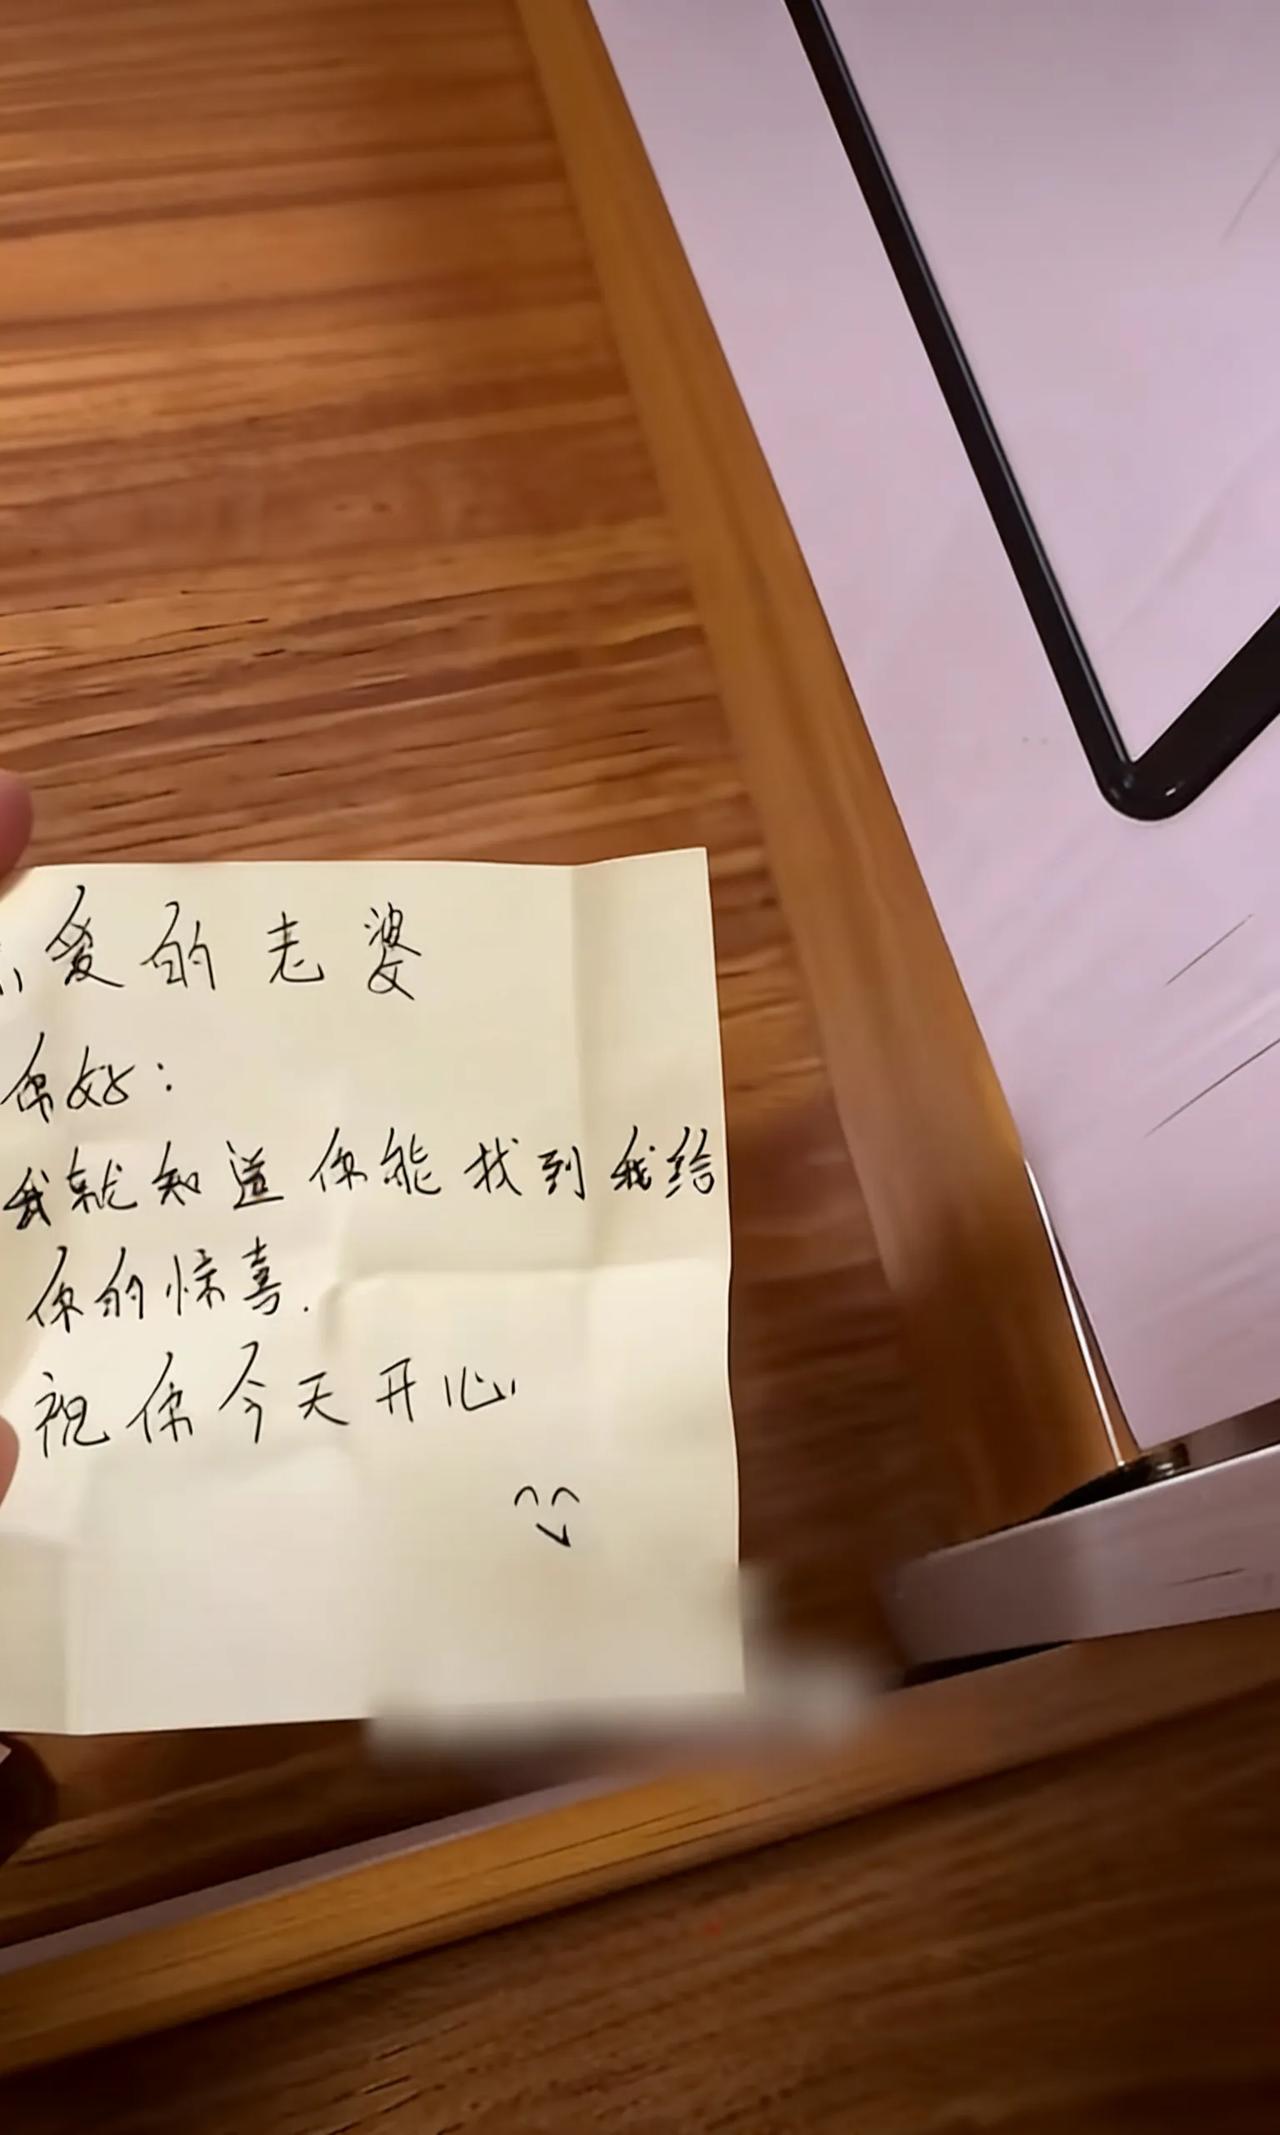 爱的老婆
你好：
我就知道你能找到我给
你的惊喜.
祝你今天开心